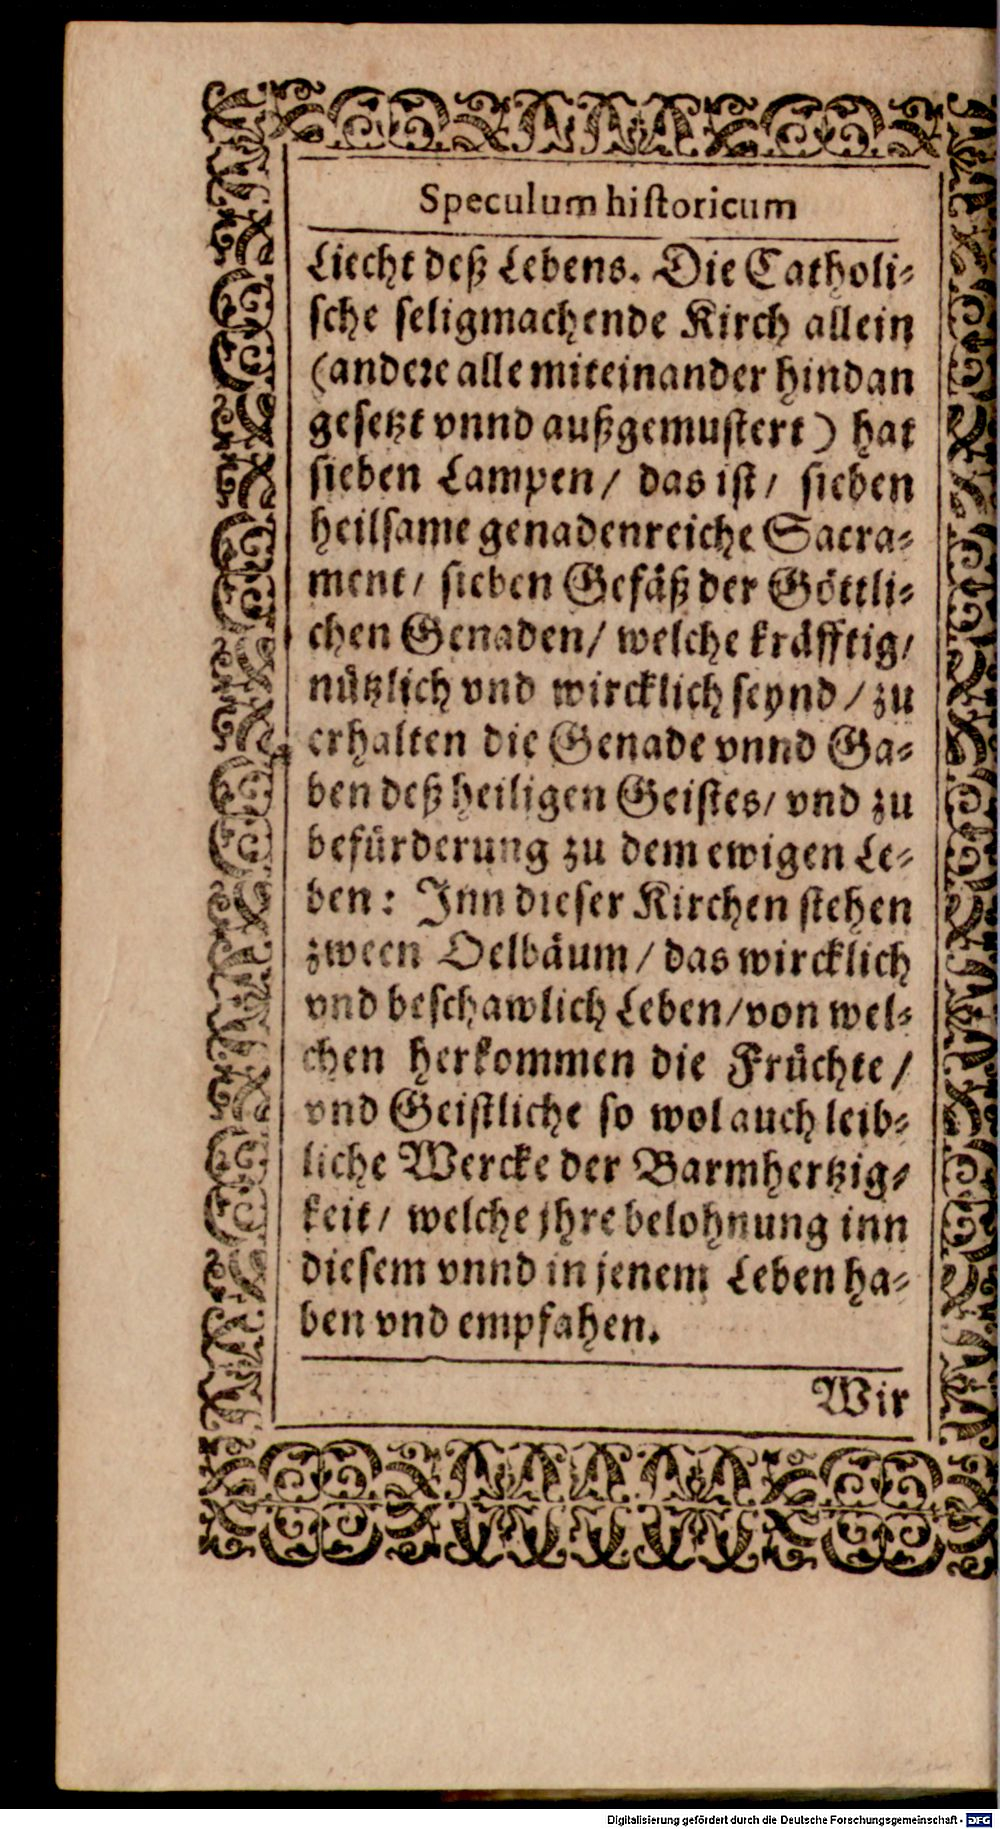 Speculum historicum
Liecht deß Lebens. Die Catholi-
sche seligmachende Kirch allein
(andere alle miteinander hindan
gesetzt vnnd außgemustert) hat
sieben Lampen/ das ist/ sieben
heilsame genadenreiche Sacra-
ment/ sieben Gefäß der Göttli-
chen Genaden/ welche kräfftig/
nützlich vnd wircklich seynd/ zu
erhalten die Genade vnnd Ga-
ben deß heiligen Geistes/ vnd zu
befürderung zu dem ewigen Le-
ben: Jnn dieser Kirchen stehen
zween Oelbäum/ das wircklich
vnd beschawlich Leben/ von wel-
chen herkommen die Früchte/
vnd Geistliche so wol auch leib-
liche Wercke der Barmhertzig-
keit/ welche jhre belohnung inn
diesem vnnd in jenem Leben ha-
ben vnd empfahen.
Wir
Digitalisierung gefördert durch die Deutsche Forschungsgemeinschaft - DFG